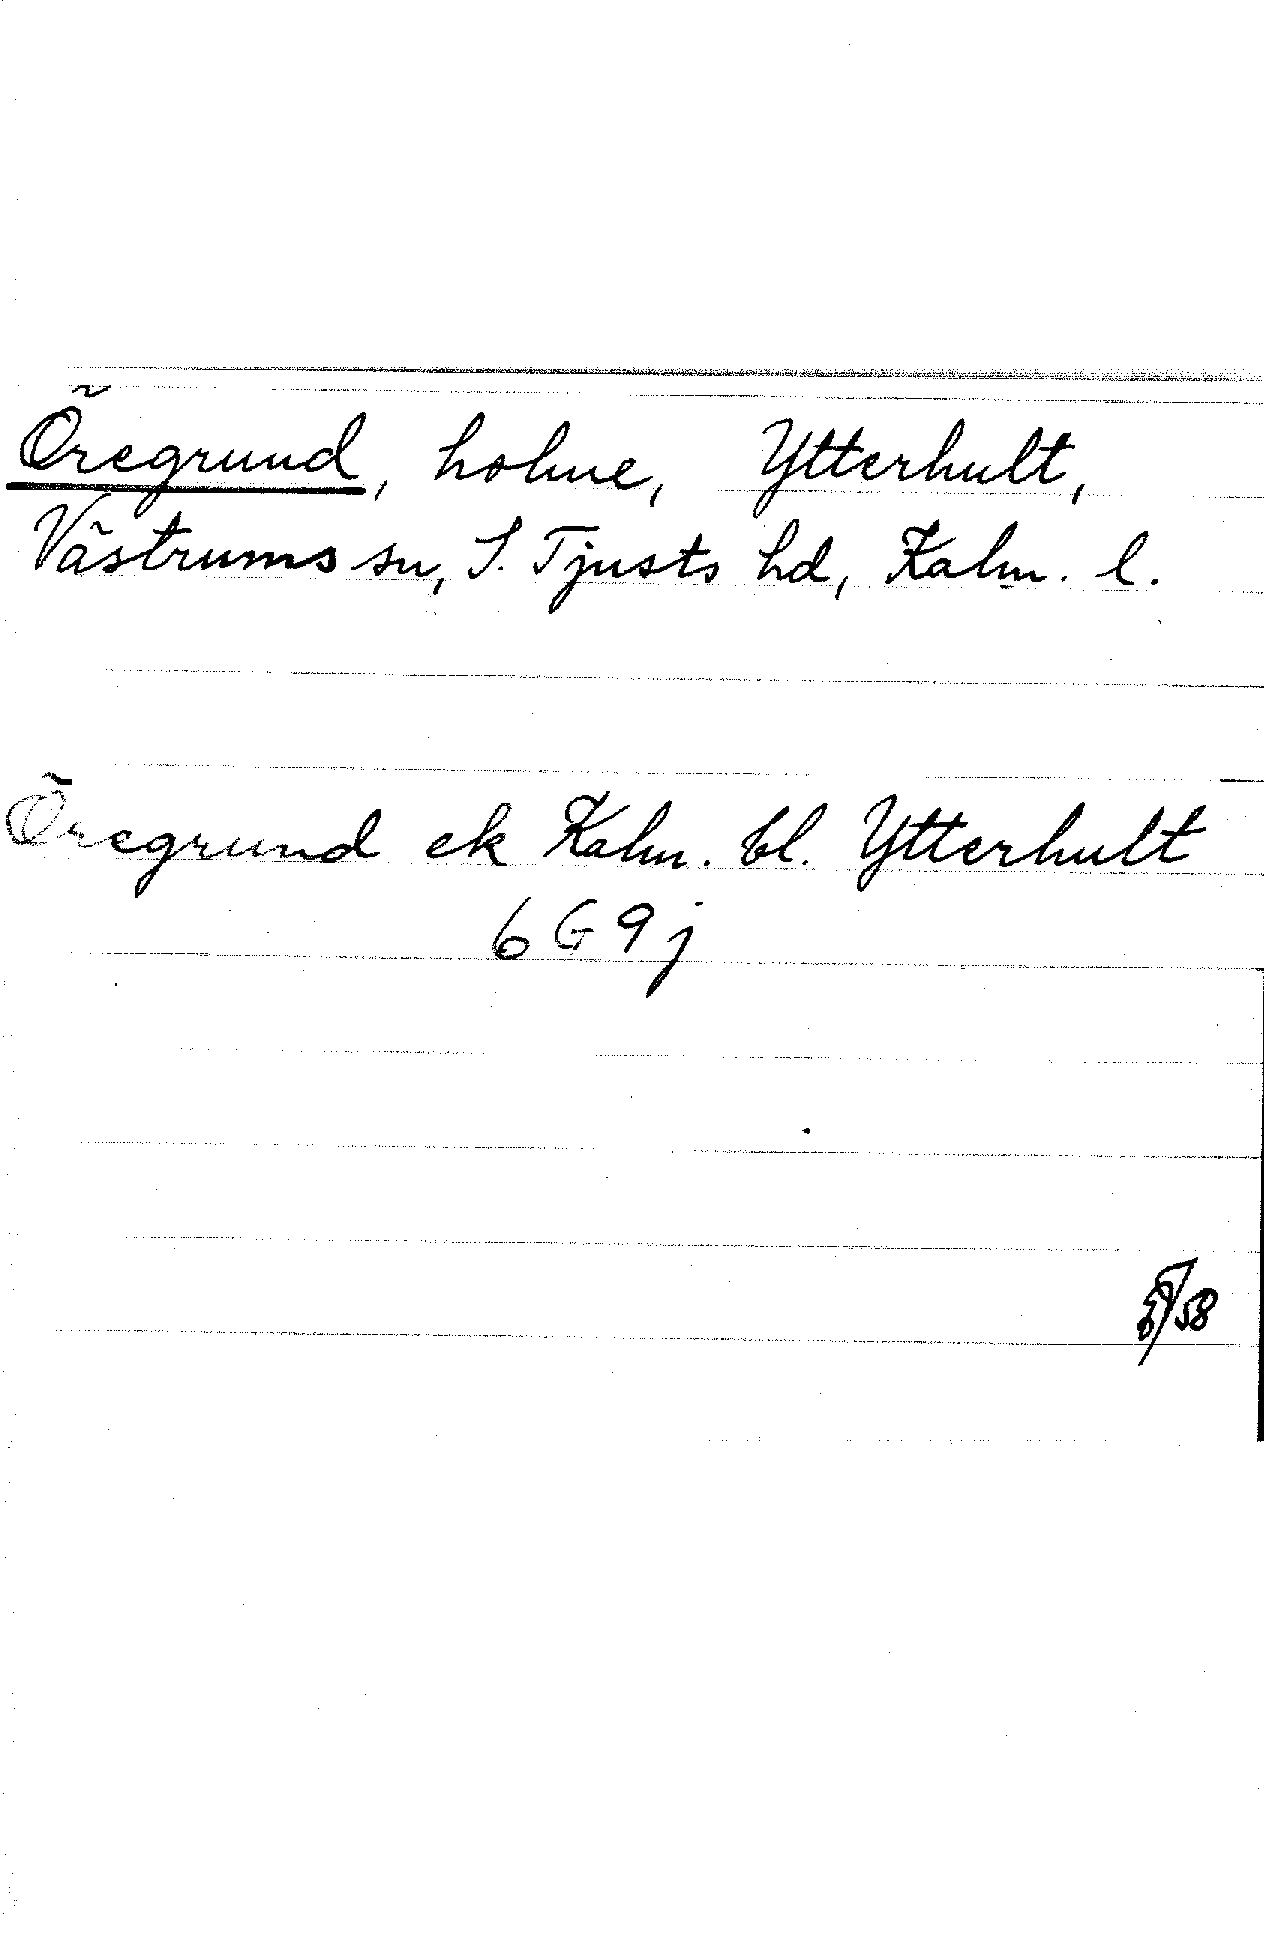 Öregrund, holme, Ytterhult,
Västrums sn, S. Tjusts hd, Kalm. l.
Öregrund ek Kalm. bl. Ytterhult
6 G 9 j
58